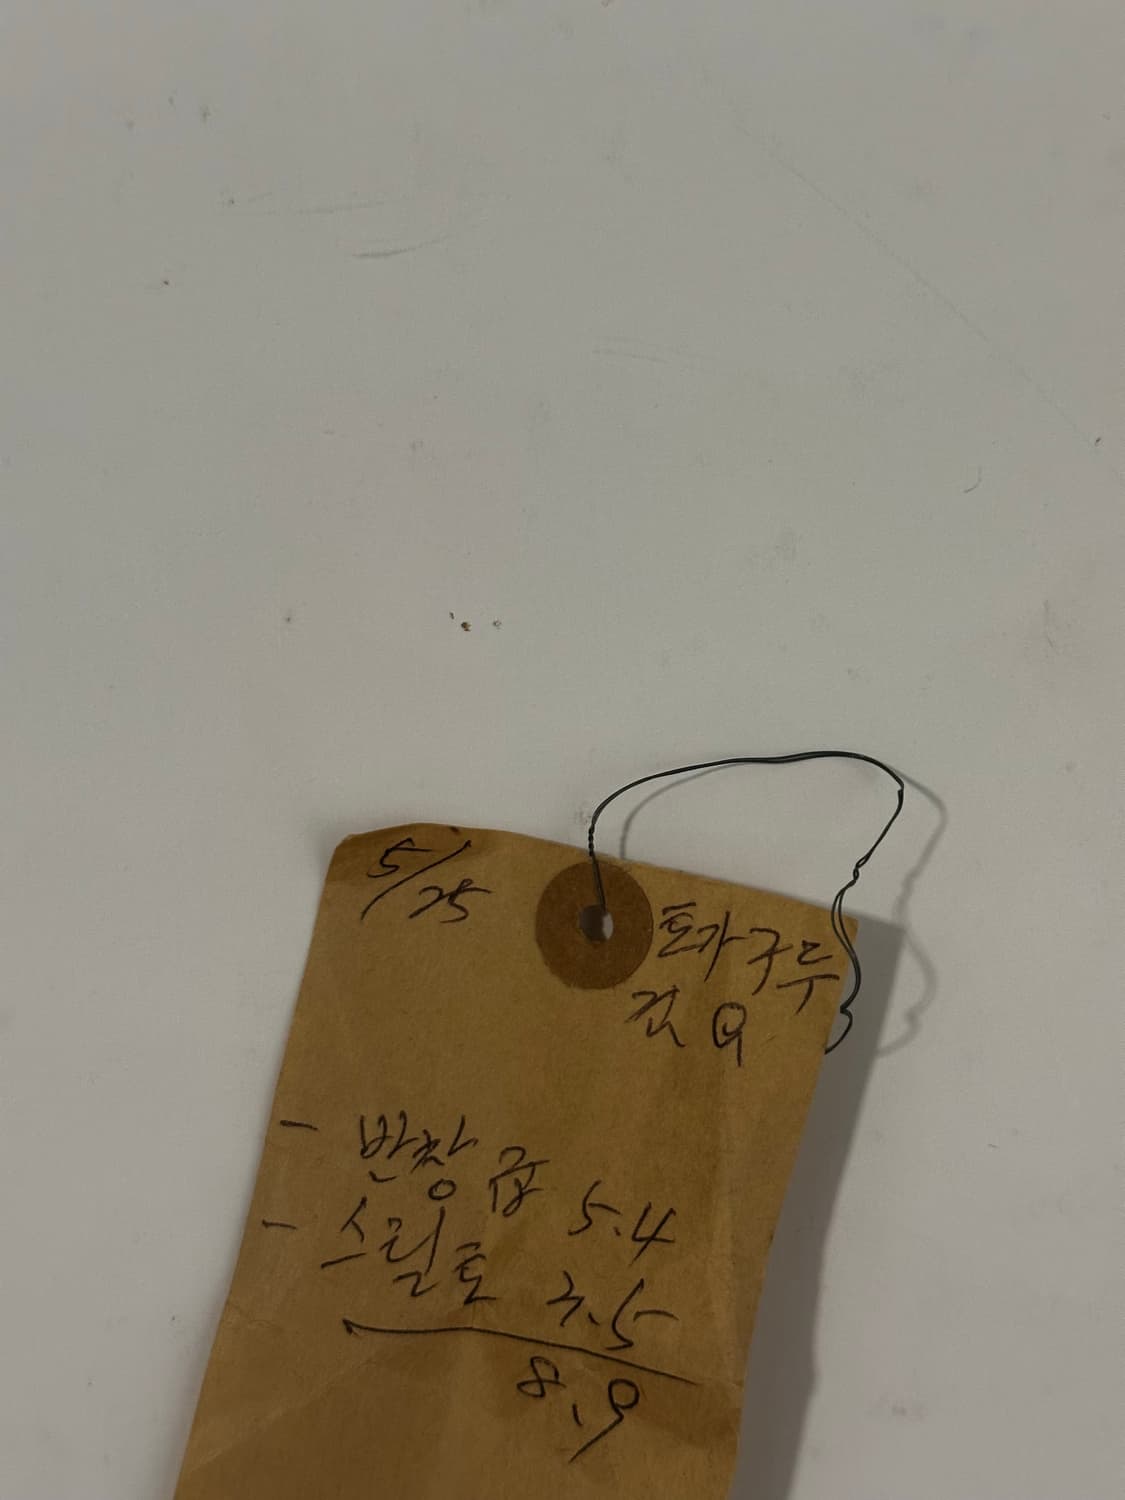 5/25
토가구두
검정
- 반창 굽 5.4
- 스틸토 3.5
8.9